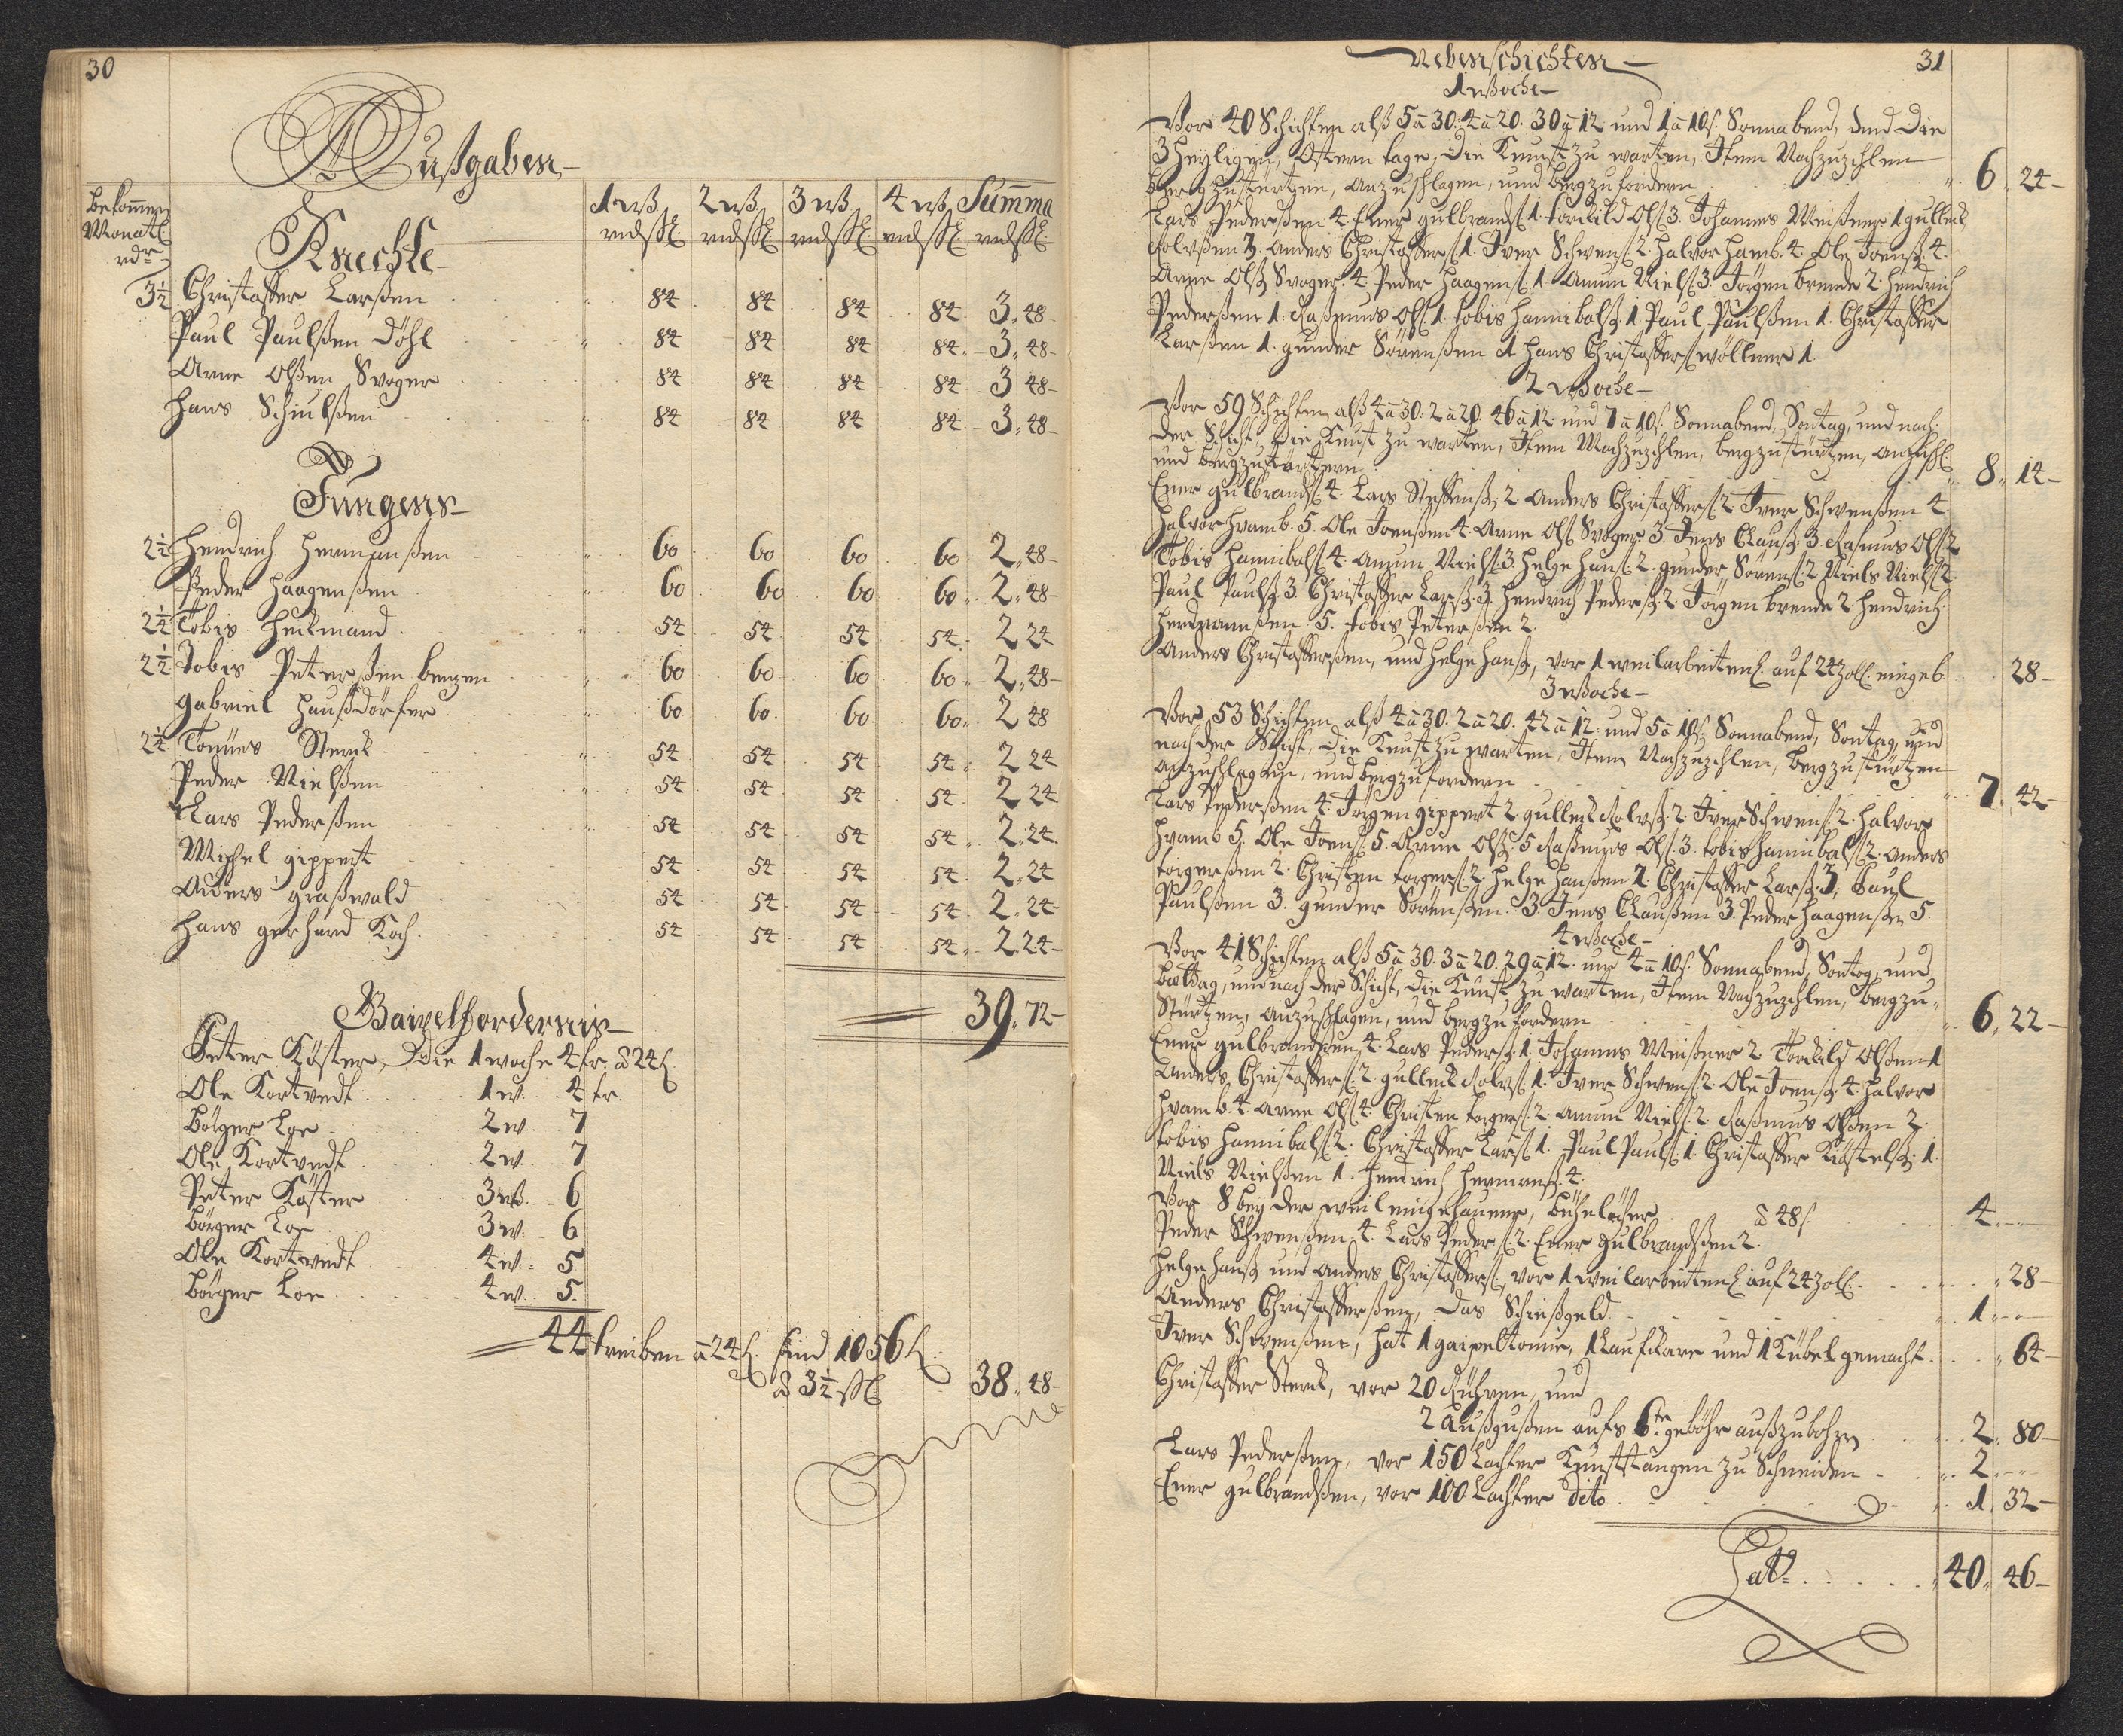 30
Außgaben
Bekom̄en
Monatl
rdr
1 wß 2 wß 3 wß 4 wß Sum̄a
rdßl. rdßl. rdßl. rdßl. rdßl.
Knechte
3½ Christoffer Larßen 84 84 84 84 3 48
Paul Paulßen Döhl 84 84 84 84 3 48
Arne Olßen Svoger 84 84 84 84 3 48
Hans Schiulßen 84 84 84 84 3 48
Jungens
2½ Hendrich Hermanßen 60 60 60 60 2 48
Peder Haagenßen 60 60 60 60 2 48
2¼ Tobis Heilmand 54 54 54 54 2 24
2½ Tobis Peterßen benzen 60 60 60 60 2 48
Gabriel Haußdörfer 60 60 60 60 2 48
2¼ Tonnies Sterck 54 54 54 54 2 24
Peder Nielßen 54 54 54 54 2 24
Lars Pederßen 54 54 54 54 2 24
Michel gippert 54 54 54 54 2 24
Anders graßwald 54 54 54 54 2 24
Hans gerhard Koch 54 54 54 54 2 24
39 72
Gaipelfordernis
Peter Köster, Die 1 woche 4 tr. à 24ß
Ole Kortvedt 1 w. 4 tr.
Börger Loe 2 w. 7
Ole Kortvedt 2 w. 7
Peter Köster 3 wß. 6
Börger Loe 3 w. 6
Ole Kortvedt 4 w. 5
Börger Loe 4 w. 5
44 treiben à 24ß sind 1056ß
à 3½ ßl 38 48
Nebenschichten 31
1 woche
Vor 40 Schichten alß 5 à 30. 4 à 20. 30 à 12 und 1 à 10ß. Sonnabend, und Die
3 Heyligen, Ostern tage, Die Kunst zu warten, Item Nachzuzehlen
berg zustürtzen, anzuschlagen, und berg zufordern 6 24
Lars Pederßen 4. Ener gulbrandß 1. torckild Olß 3. Johannes Meißner 1 gulleck
Rolvßen 3. Anders Christoffers 1. Iver Schwens 2. Halvor Hamb. 4. Ole Joenß. 4.
Arne Olß Svoger. 4 Peder Haagens 1. Amun Niels 3. Jörgen brende 2. Hendrich
Pederßen 1. Raßmus Olß 1. tobis Hannibalß. 1 Paul Paulßen 1. Christoffer
Larßen 1. gunder Sörenßen 1 Hans Christoffers wöllner 1
2 woche
Vor 59 Schichten alß 4 à 30. 2 à 20. 46 à 12 und 7 à 10ß. Sonnabend, Sontag, und nach
der Schicht, Die Kunst zu warten, Item Nachzuzehlen, berg zustürtzen, anzuschl.
und berg zufordern 8 14
Ener gulbrands 4. Lars Steffenß. 2 Anders Christoffers 2 Iver Schwenßen 4
Halvor Hvamb. 5 Ole Joenßen 4. Arne Olß Svoger 3. Jens Clauß. 3. Raßmus Olß 2
Tobis Hannibalß 4. Amun Niels 3. Helge Hanß. 2. gunder Sörens 2 Niels Niels 2.
Paul Paulß. 3 Christoffer Larß. 3. Hendrich Pederß. 2. Jörgen brende 2. Hendrich
Hermanßen 5. tobis Peterßen 2.
Anders Christofferßen, und Helge Hanß, vor 1 weilarbeiten. auf 24 zoll. eingeb. 28
3 woche
Vor 53 Schichten alß 4 à 30. 2 à 20. 42 à 12. und 5 à 10ß. Sonnabend, Sontag, und
nach der Schicht, Die Kunst zu warten, Item Nachzuzehlen, berg zustürtzen
anzuschlagen, und berg zufordern 7 42
Lars Pederßen 4. Jörgen gippert 2. gulleck Rolvß. 2 Iver Schwens 2. Halvor
Hvamb 5. Ole Joens. 5. Arne Olß. 5 Raßmus Olß. 3. tobis Hannibals 2. Anders
torgerßen 2. Christen torgers 2. Helge Hanßen 2. Christoffer Larß. 3. Paul
Paulßen 3. gunder Sörenßen 3. Jens Claußen 3. Peder Haagenßen 5.
4 woche
Vor 41 Schichten alß 5 à 30. 3 à 20. 29 à 12. und 4 à 10ß. Sonnabend, Sontag, und
bettag, und nach der Schicht, Die Kunst zu warten, Item Nachzuzehlen, berg zu
Stürtzen, anzuschlagen, und berg zu fordern 6 22
Ener gulbrandßen 4. Lars Pederß. 1. Johannes Meißner 2 Torckild Olßen 1
Anders Christoffers. 2. gulleck Rolvß. 1. Iver Schwens. 2. Ole Joenß. 4. Halvor
Hvamb. 4. Arne Olß 4. Christen torgers. 2. Amun Niels. 2. Raßmus Olßen 2.
tobis Hannibals 2. Christoffer Larß 1. Paul Pauls. 1 Christoffer Köstelß. 1.
Niels Nielßen 1. Hendrich Hermanß. 4.
Vor 8 bey der weil eingehauene, bühnlöcher à 48ß. 4
Peder Schwenßen 4. Lars Peders. 2. Ener gulbrandßen 2.
Helge Hanß. und Anders Christoffers, vor 1 weilarbeiten auf 24 zoll. 28
Anders Christofferßen, Das Schießgeld 1
Iver Schwenßen, hat 1 gaipeltonne, 1 Lauf Kare und 1 Kübel gemacht 64
Christoffer Sterck, vor 20 Rühren, und
2 Außgußen aufs 6te gebohr außzubohren 2 80
Lars Pederßen, vor 150 Lachter Kunststangen zu Schneiden 2
Ener gulbrandßen, vor 100 Lachter dito 1 32
Lats 40 46